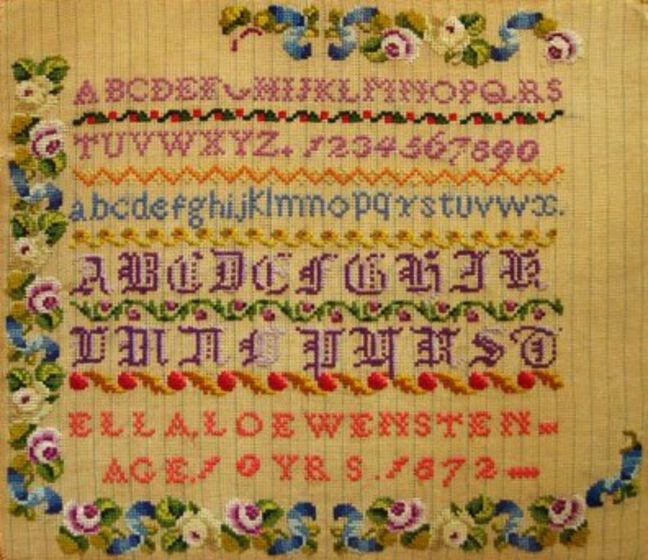 ABCDEFGHIJKLMNOPQRS
TUVWXYZ. 1234567890
abcdefghijklmnopqrstuvwx.
ABCDEFGHIK
LMNOPQRST
ELLA, LOEWENSTEN
AGE, 10 YRS. 1872